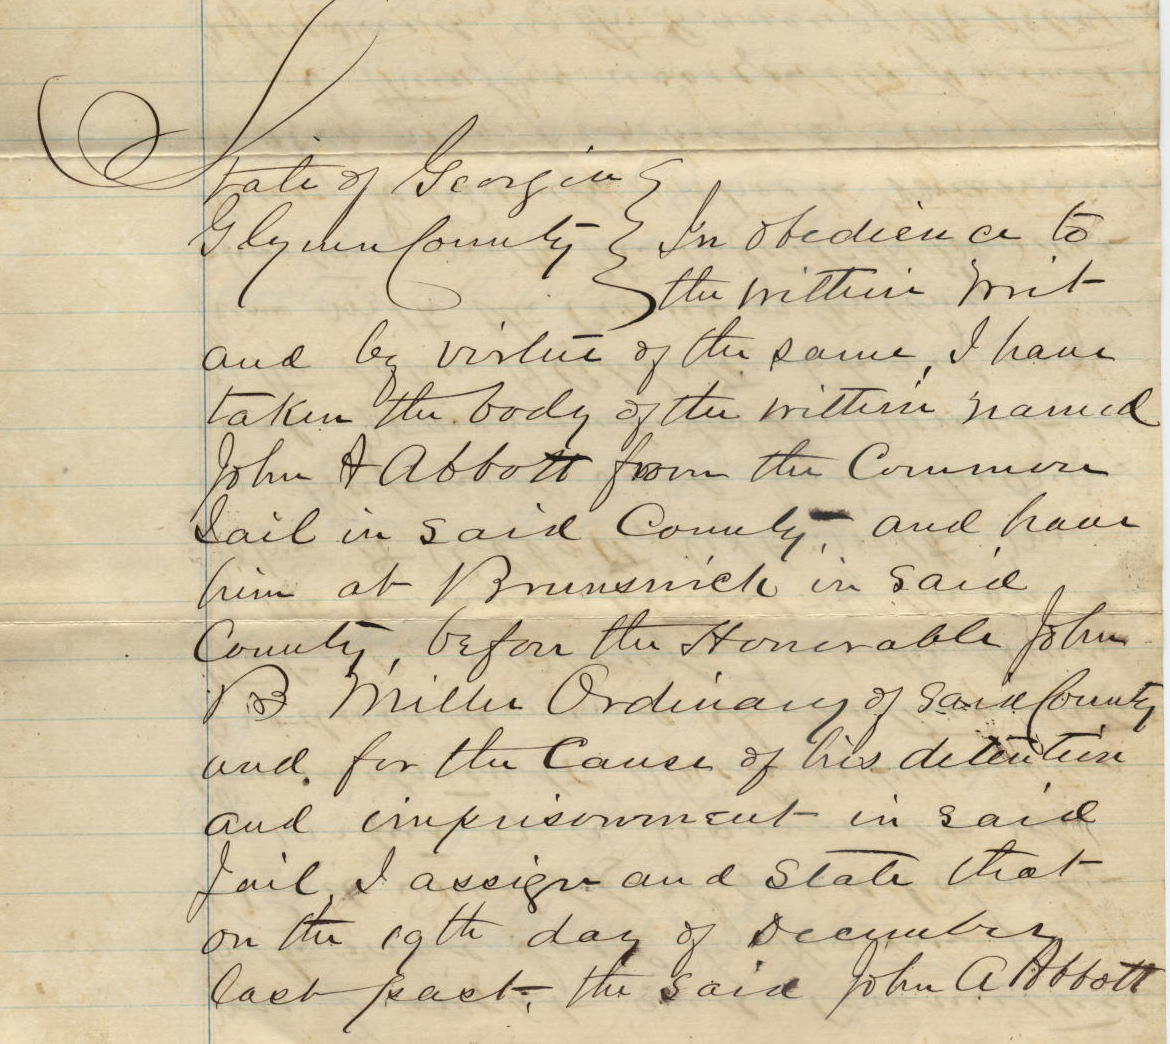 State of Georgia }
Glynn County } In obedience to
} the within writ
and by virtue of the same, I have
taken the body of the within named
John A Abbott from the Common
Jail in said County, and have
him at Brunswick in said
County, before the Honorable John
B Miller Ordinary of said County
and for the Cause of his detention
and imprisonment in said
Jail, I assign and State that
on the 19th day of December
last past, the said John A Abbott